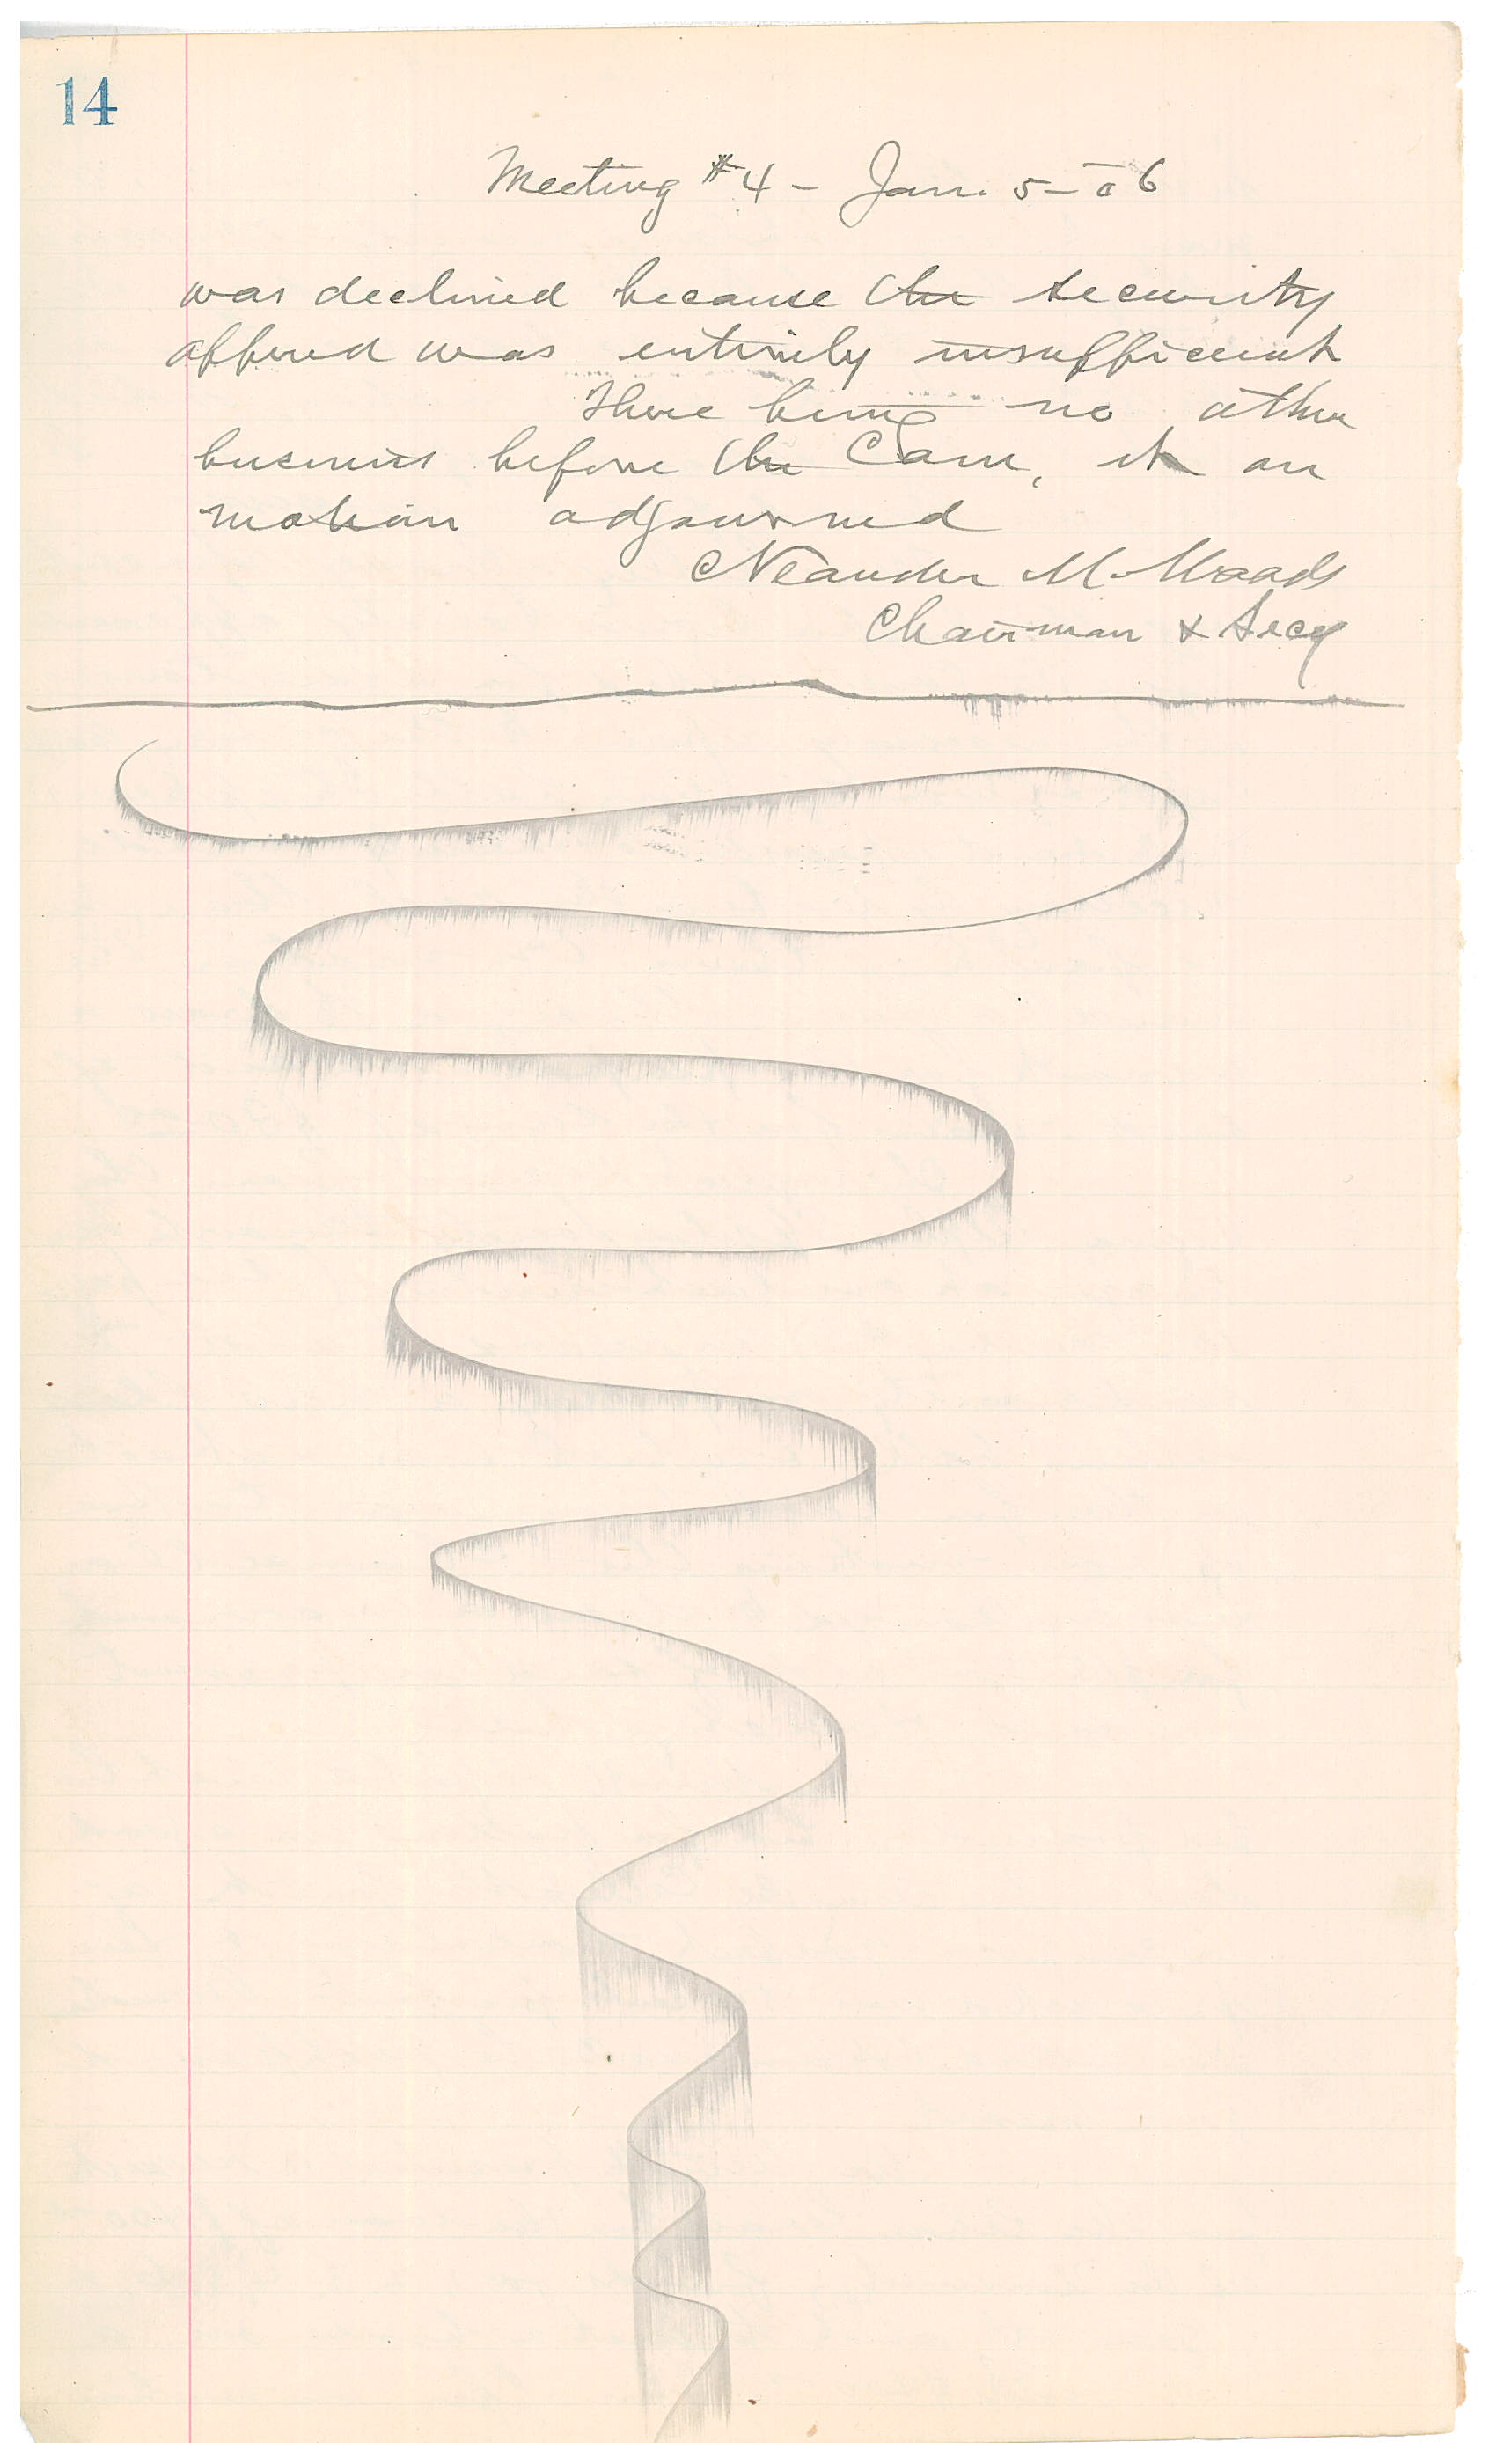 14
Meeting #4 - Jan. 5-06
was declined because the security
offered was entirely insufficient
There being no other
business before the Com, it on
motion adjourned
Neander M. Woods
Chairman & Secy